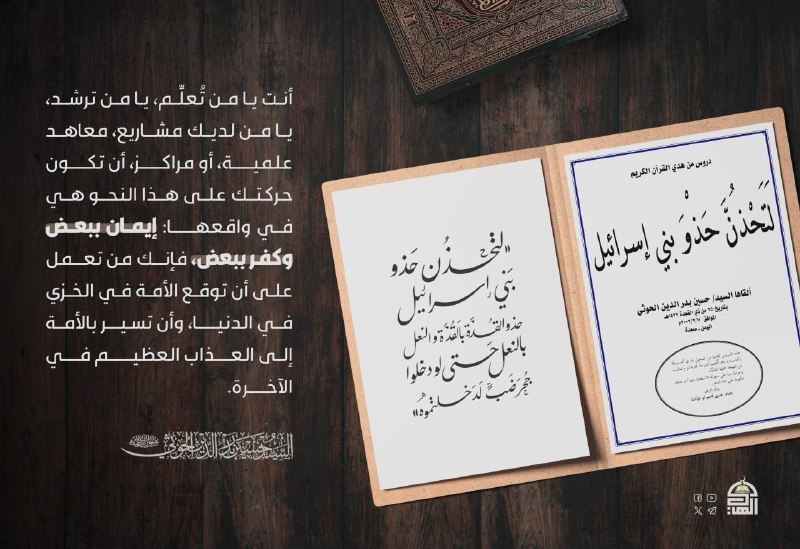 أنت يا من تُعلِّم، يا من ترشد،
يا من لديك مشاريع، معاهد
علمية، أو مراكز، أن تكون
حركتك على هذا النحو هي
في واقعها: إيمان ببعض
وكفر ببعض، فإنك من تعمل
على أن توقع الأمة في الخزي
في الدنيا، وأن تسير بالأمة
إلى العذاب العظيم في
الآخرة.
السيد حسين بدر الدين الحوثي
دروس من هدي القرآن الكريم
لَتَحْذُنَّ حَذْوَ بني إسرائيل
ألقاها السيد/ حسين بدر الدين الحوثي
اليمن - صعدة
«لتحذُن حَذو
بَني إسرائيل
حذو القُذَّة بالقُذَّة والنعل
بالنعل حَتى لو دخلوا
جُحر ضَبٍّ لَدخلتموهُ»